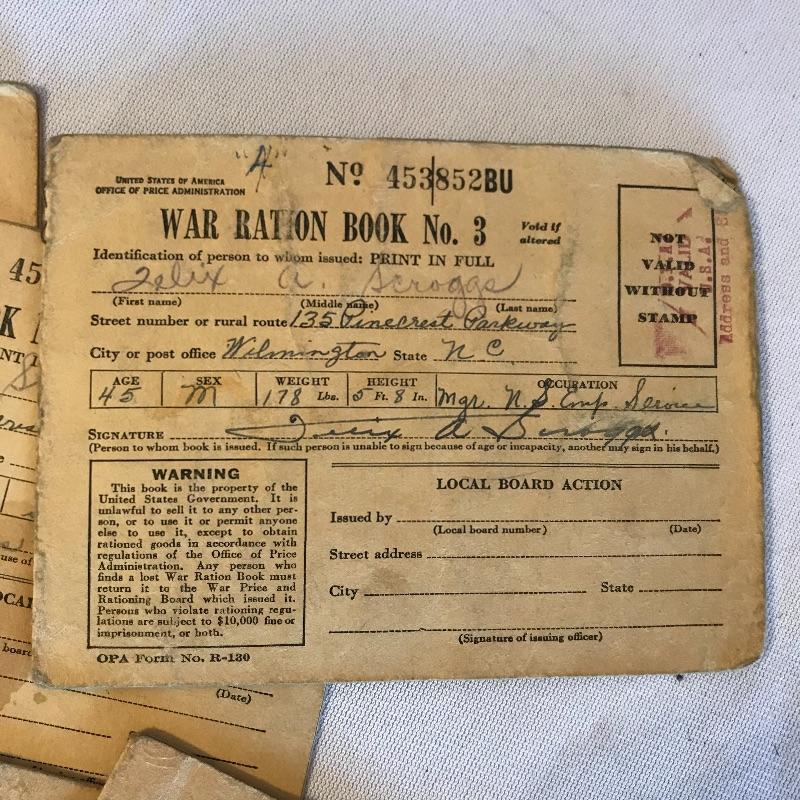 "A"
UNITED STATES OF AMERICA
OFFICE OF PRICE ADMINISTRATION
Nº 453852BU
WAR RATION BOOK No. 3
Void if
altered
Identification of person to whom issued: PRINT IN FULL
Felix A. Scroggs
(First name) (Middle name) (Last name)
Street number or rural route 135 Pinecrest Parkway
City or post office Wilmington State N C
AGE SEX WEIGHT HEIGHT OCCUPATION
45 M 178 Lbs. 5 Ft. 8 In. Mgr. N.S. Emp. Service
SIGNATURE Felix A Scroggs.
(Person to whom book is issued. If such person is unable to sign because of age or incapacity, another may sign in his behalf.)
NOT
VALID
WITHOUT
STAMP
VALID
U.S.A.
Address and
WARNING
This book is the property of the
United States Government. It is
unlawful to sell it to any other per-
son, or to use it or permit anyone
else to use it, except to obtain
rationed goods in accordance with
regulations of the Office of Price
Administration. Any person who
finds a lost War Ration Book must
return it to the War Price and
Rationing Board which issued it.
Persons who violate rationing regu-
lations are subject to $10,000 fine or
imprisonment, or both.
OPA Form No. R-130
LOCAL BOARD ACTION
Issued by
(Local board number) (Date)
Street address
City State
(Signature of issuing officer)
45
K
NT
use of
OCAL
board
(Date)